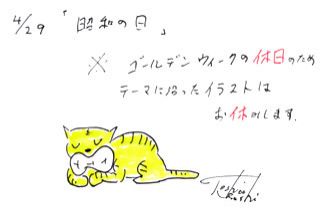 4/29 「昭和の日」
※ ゴールデンウィークの休日のため
テーマに沿ったイラストは
お休みします。